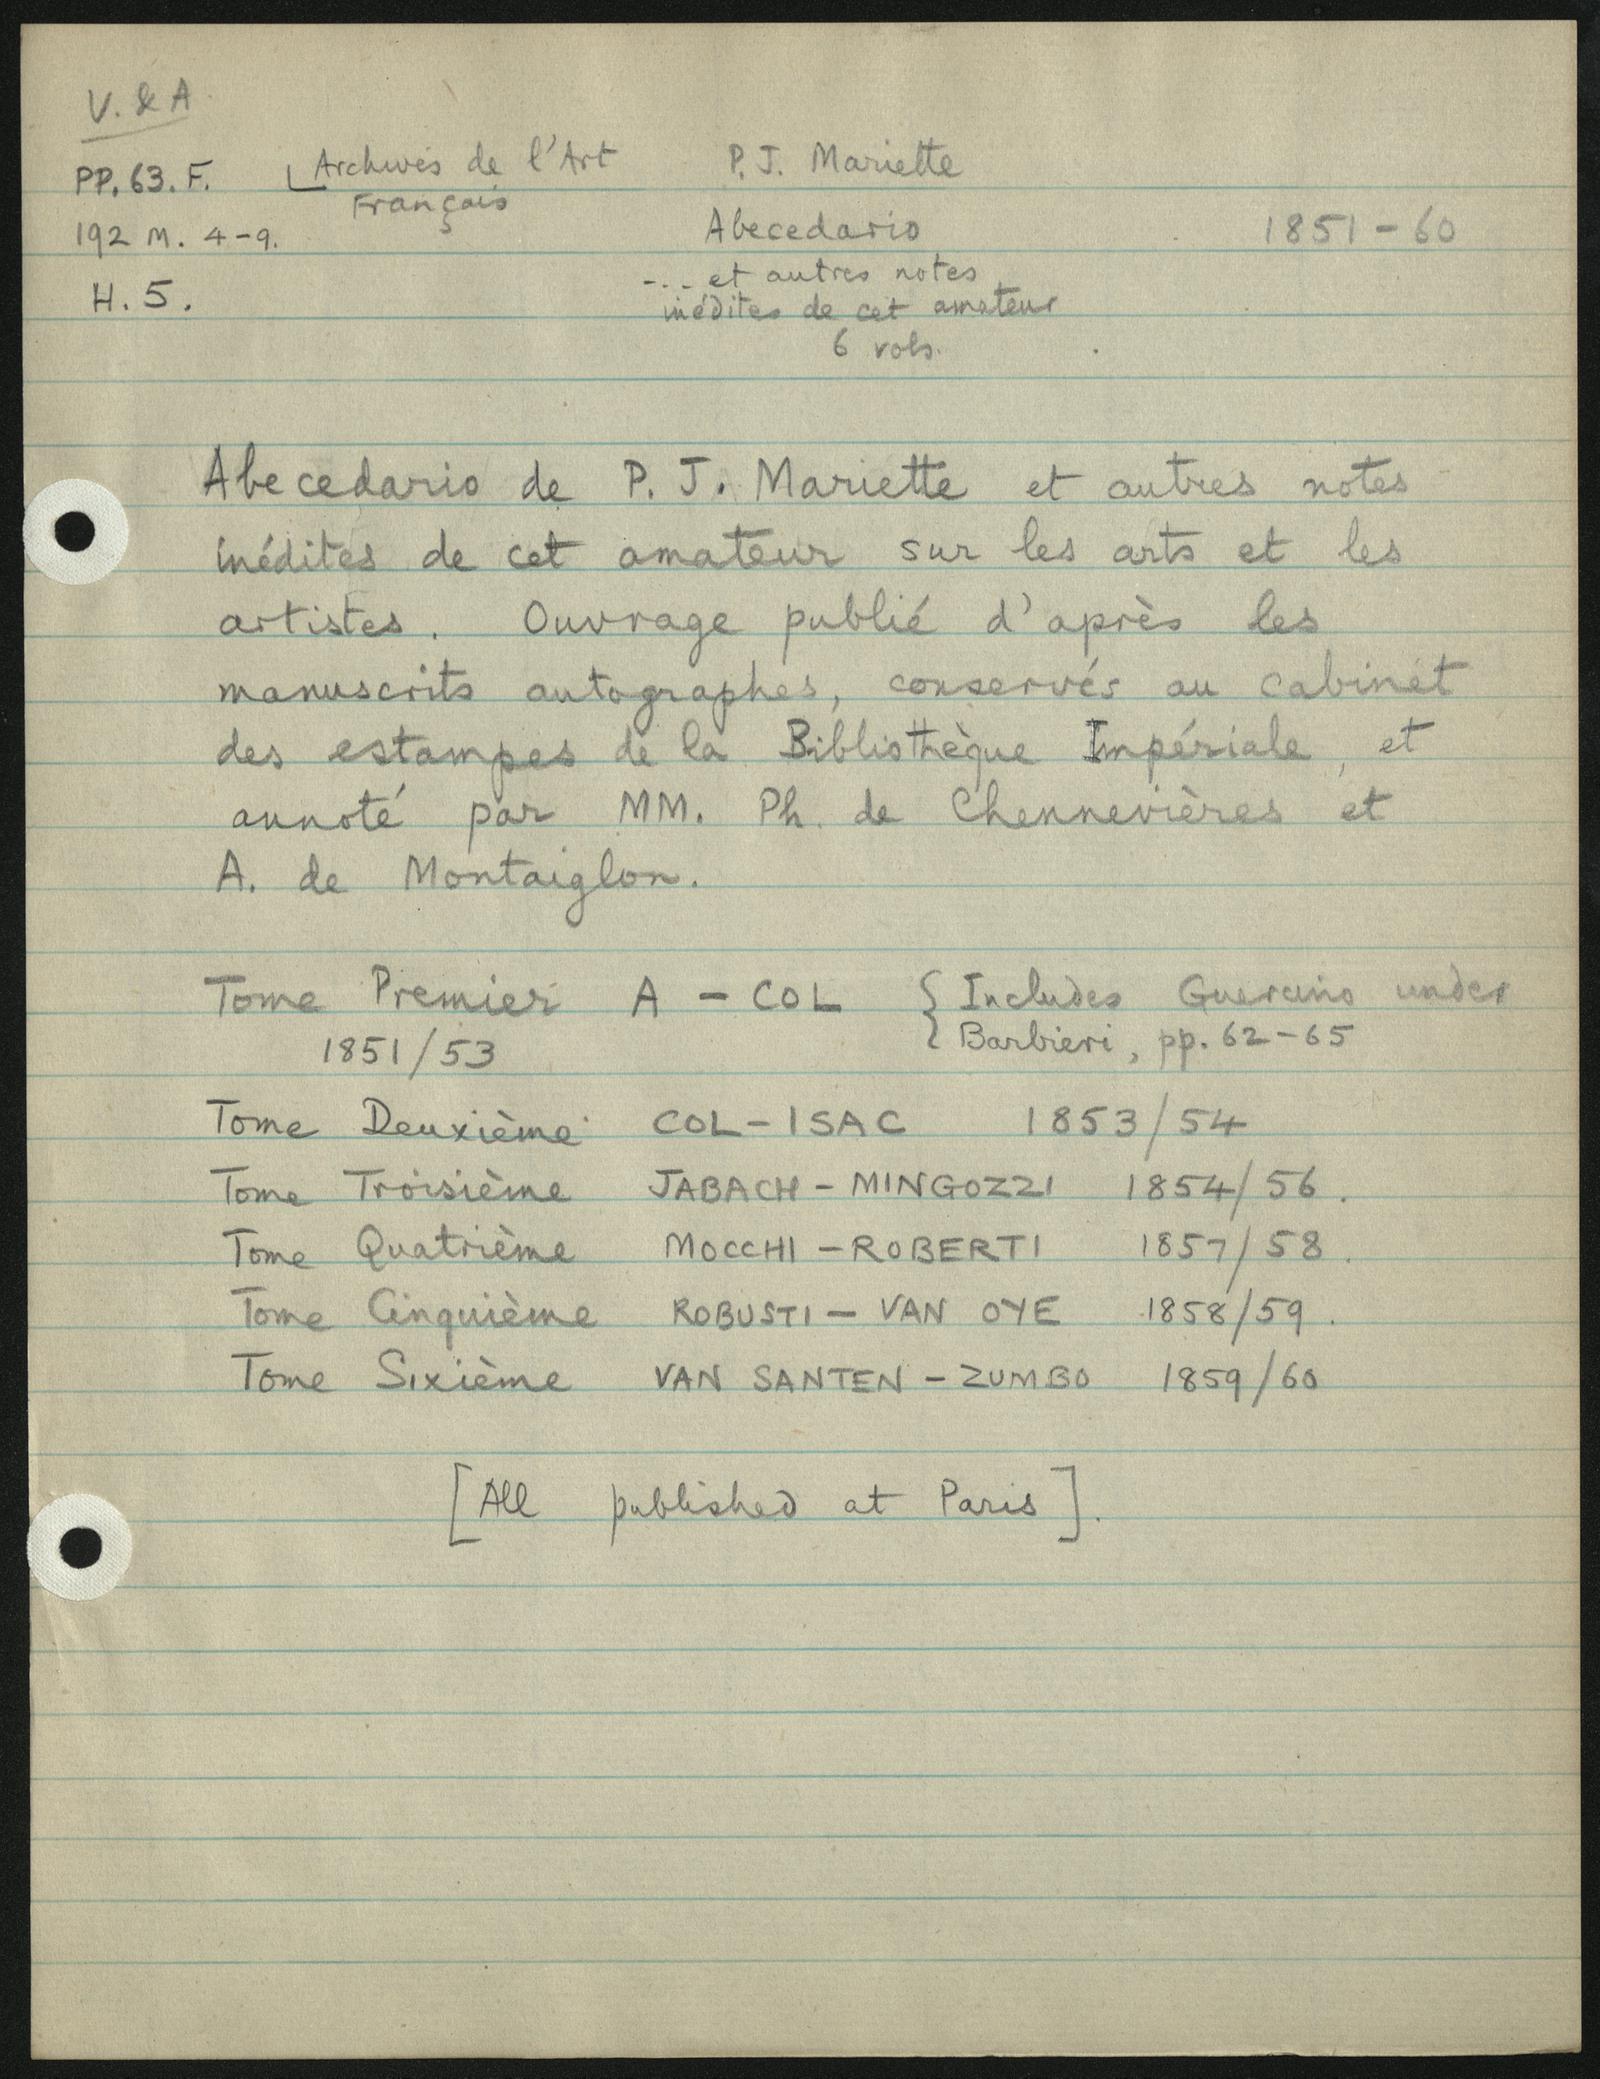 V. & A
PP. 63. F.
192 M. 4-9.
H. 5.
Archives de l'Art
Français
P. J. Mariette
Abecedario
--.. et autres notes
inédites de cet amateur
6 vols.
1851-60
Abecedario de P. J. Mariette et autres notes
inédites de cet amateur sur les arts et les
artistes. Ouvrage publié d'après les
manuscrits autographes, conservés au cabinet
des estampes de la Bibliothèque Impériale, et
annoté par MM. Ph. de Chennevières et
A. de Montaiglon.
Tome Premier A - COL { Includes Guercino under
1851/53 Barbieri, pp. 62-65
Tome Deuxième COL-ISAC 1853/54
Tome Troisième JABACH - MINGOZZI 1854/56.
Tome Quatrième MOCCHI - ROBERTI 1857/58.
Tome Cinquième ROBUSTI - VAN OYE 1858/59.
Tome Sixième VAN SANTEN - ZUMBO 1859/60
[All published at Paris].